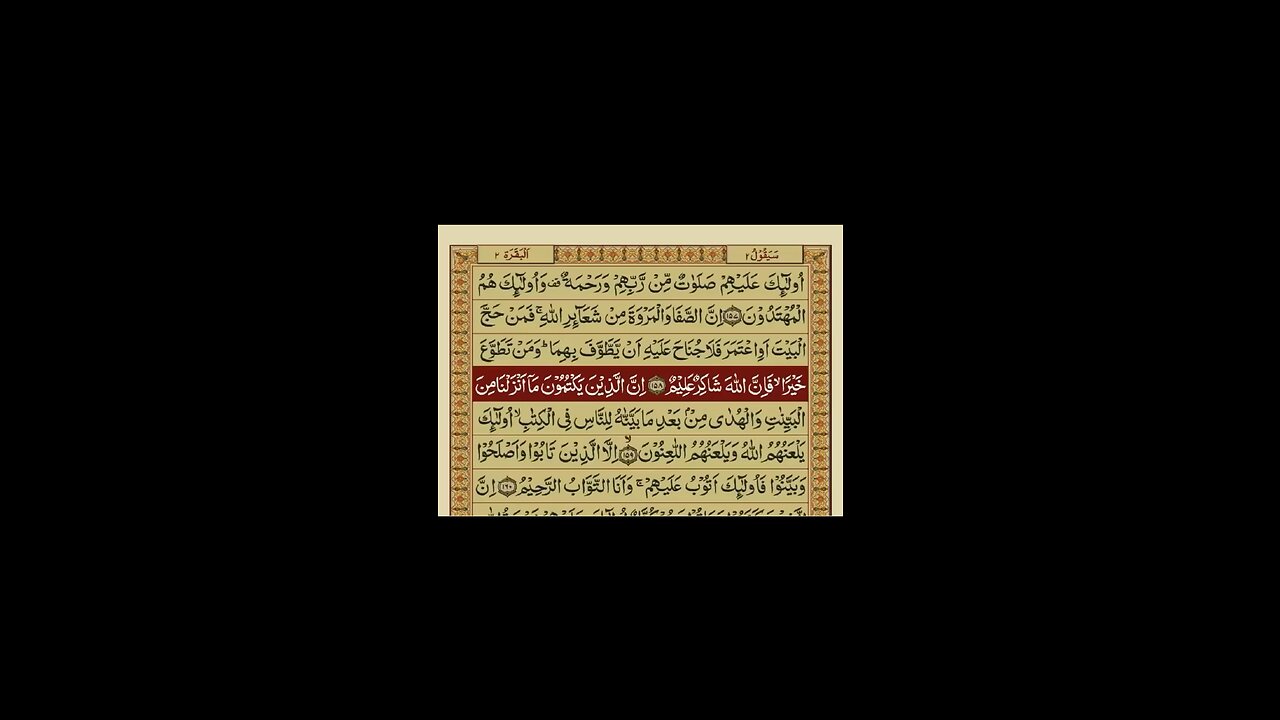 سَيَقُوْلُ ٢ اَلْبَقَرَة ٢
اُولٰٓئِكَ عَلَيْهِمْ صَلَوٰتٌ مِّنْ رَّبِّهِمْ وَرَحْمَةٌ ۫ وَاُولٰٓئِكَ هُمُ
الْمُهْتَدُوْنَ ﴿١٥٧﴾ اِنَّ الصَّفَا وَالْمَرْوَةَ مِنْ شَعَآئِرِ اللّٰهِ ۚ فَمَنْ حَجَّ
الْبَيْتَ اَوِ اعْتَمَرَ فَلَا جُنَاحَ عَلَيْهِ اَنْ يَّطَّوَّفَ بِهِمَا ؕ وَمَنْ تَطَوَّعَ
خَيْرًا ۙ فَاِنَّ اللّٰهَ شَاكِرٌ عَلِيْمٌ ﴿١٥٨﴾ اِنَّ الَّذِيْنَ يَكْتُمُوْنَ مَآ اَنْزَلْنَا مِنَ
الْبَيِّنٰتِ وَالْهُدٰى مِنْۢ بَعْدِ مَا بَيَّنّٰهُ لِلنَّاسِ فِى الْكِتٰبِ ۙ اُولٰٓئِكَ
يَلْعَنُهُمُ اللّٰهُ وَيَلْعَنُهُمُ اللّٰعِنُوْنَ ۙ ﴿١٥٩﴾ اِلَّا الَّذِيْنَ تَابُوْا وَاَصْلَحُوْا
وَبَيَّنُوْا فَاُولٰٓئِكَ اَتُوْبُ عَلَيْهِمْ ۚ وَاَنَا التَّوَّابُ الرَّحِيْمُ ﴿١٦٠﴾ اِنَّ